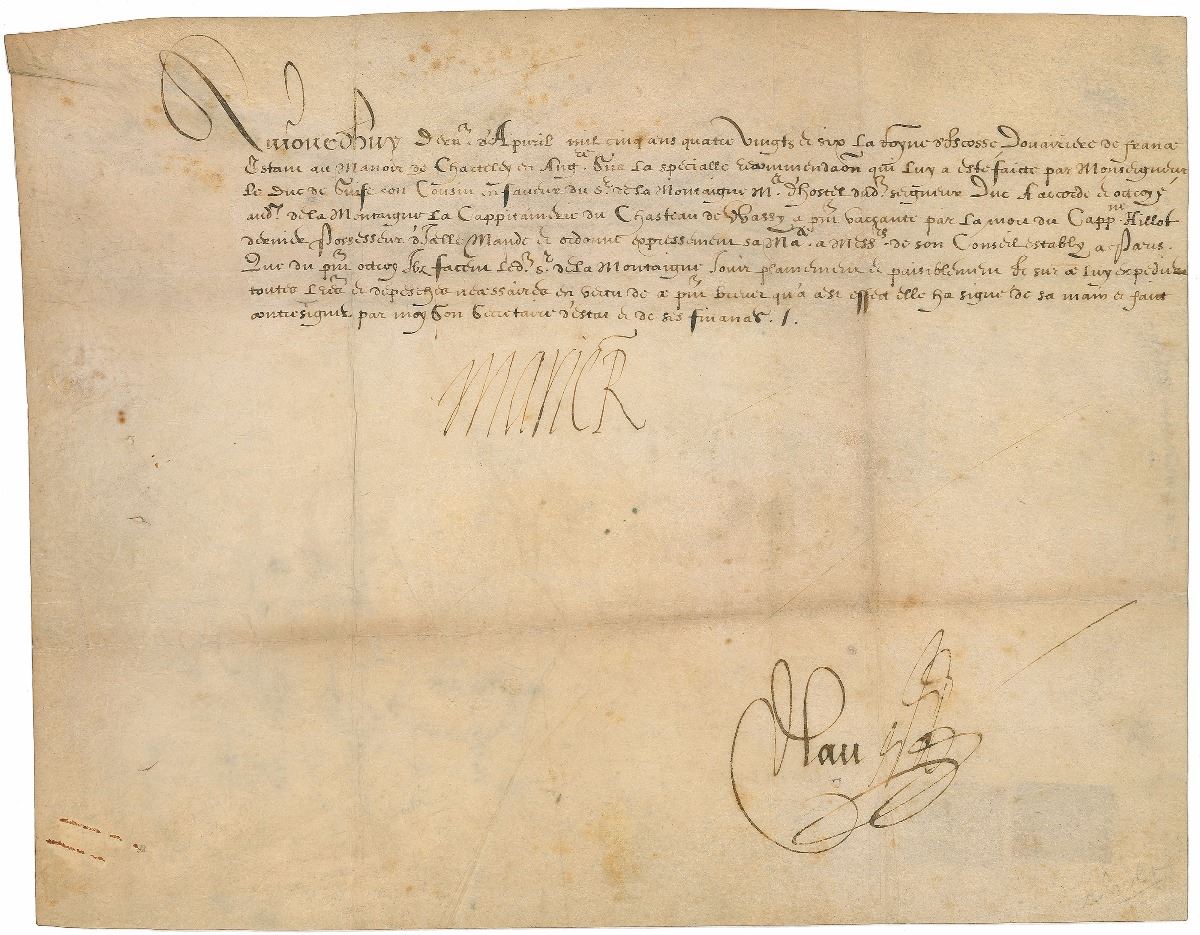 Aujourdhuy Derñ. d'Apvril mil cinq cens quatre vingts et six La Royne d'Escosse Douairiere de france
Estant au Manoir de Charteley en Angre. Sur La specialle recommendaon qui Luy a esté faicte par Monseigneur
Le Duc de Guise son Cousin en faveur du Sr. de la Montaigne Me. d'hostel dudt. seigneur Duc A accordé et octroyé
audt. de la Montaigne La Cappitainerie du Chasteau de Wassy a pñt vaccante par La mort du Cappne. Hillot
dernier Possesseur d'Icelle Mande et ordonne expressement sa Mate. a Messrs. de son Conseil estably a Paris.
Que du pñt octroy Ilz facent Ledt. Sr. de la Montaigne Jouir plainement et paisiblement Et sur ce Luy expedient
toutes Lres et depesches necessaires en vertu de ce pñt brevet qu'a cest effect elle ha signé de sa main et faict
contresigner par moy Son Secretaire d'estat et de ses finances. /.
MARIE R
Nau